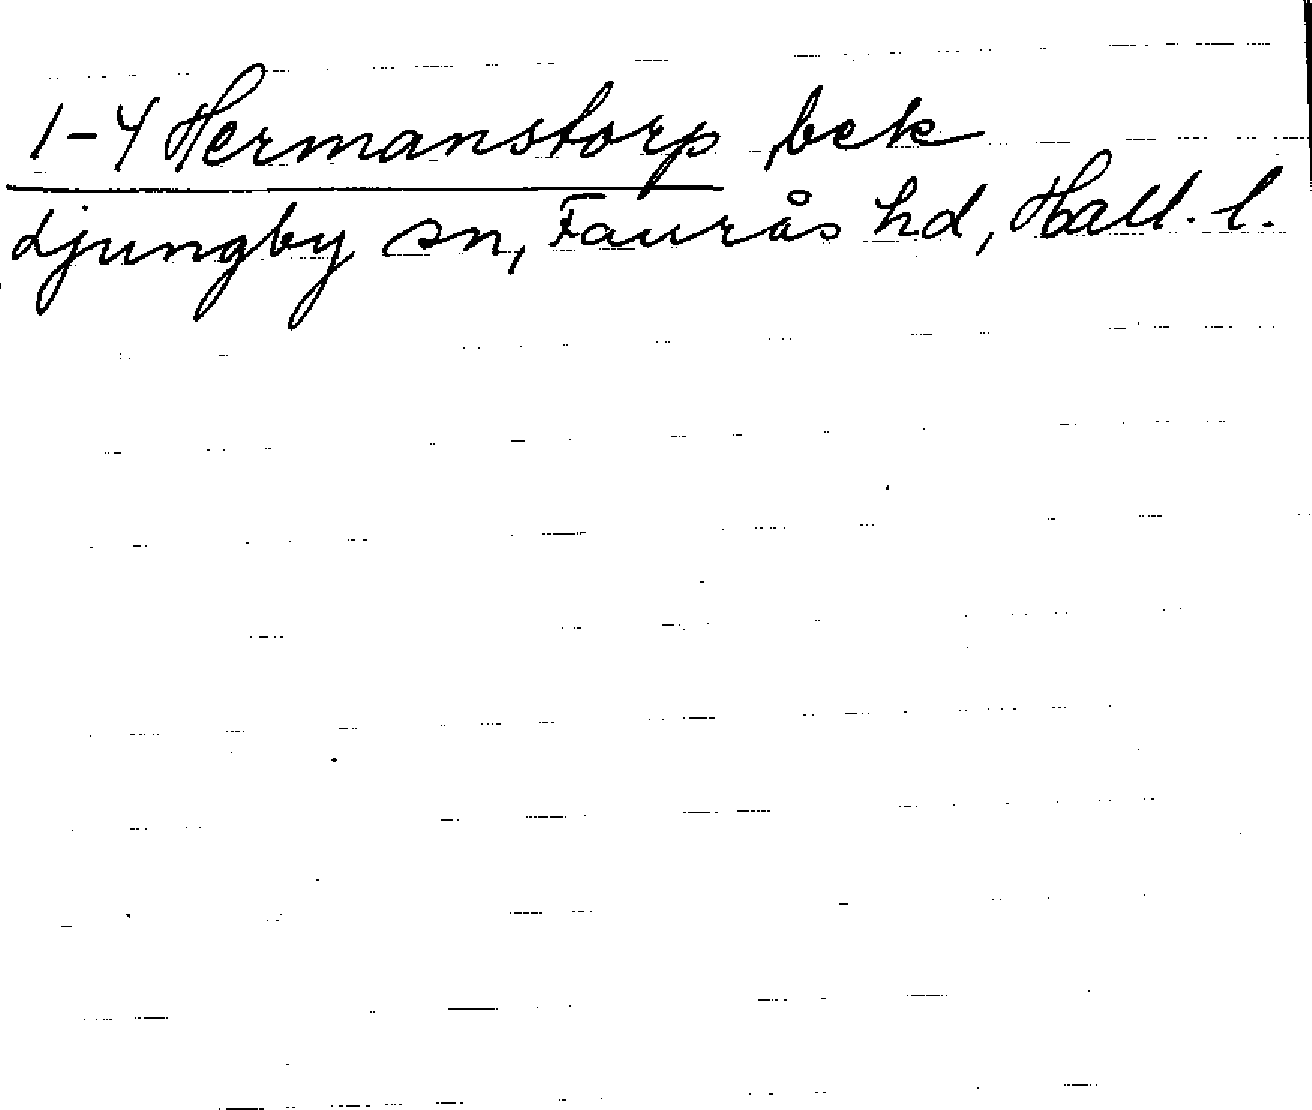 1-4 Hermanstorp, bek
Ljungby sn, Faurås hd, Hall. l.